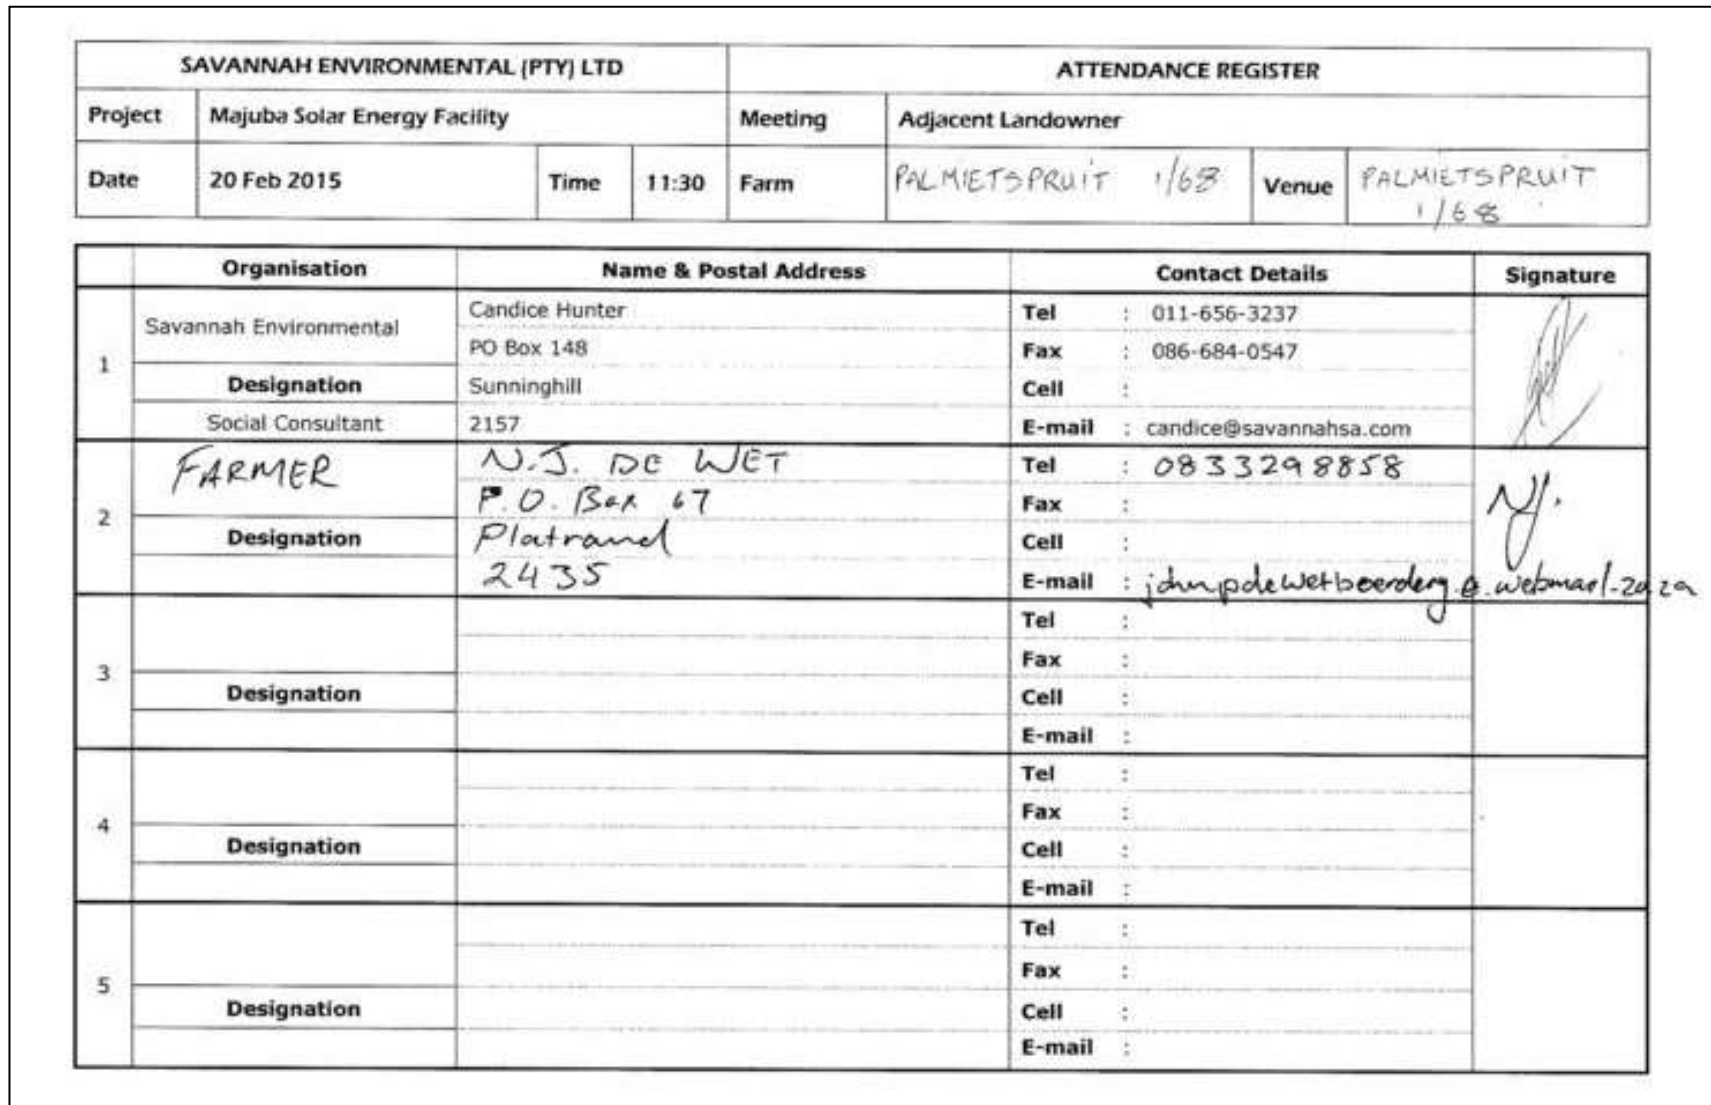 SAVANNAH ENVIRONMENTAL (PTY) LTD ATTENDANCE REGISTER
Project Majuba Solar Energy Facility Meeting Adjacent Landowner
Date 20 Feb 2015 Time 11:30 Farm PALMIETSPRUIT 1/68 Venue PALMIETSPRUIT
1/68
Organisation Name & Postal Address Contact Details Signature
1 Savannah Environmental Candice Hunter Tel : 011-656-3237
PO Box 148 Fax : 086-684-0547
Designation Sunninghill Cell :
Social Consultant 2157 E-mail : candice@savannahsa.com
2 FARMER N.J. DE WET Tel : 0833298858
P.O. Box 67 Fax :
Designation Platrand Cell :
2435 E-mail :
3 Tel :
Fax :
Designation Cell :
E-mail :
4 Tel :
Fax :
Designation Cell :
E-mail :
5 Tel :
Fax :
Designation Cell :
E-mail :